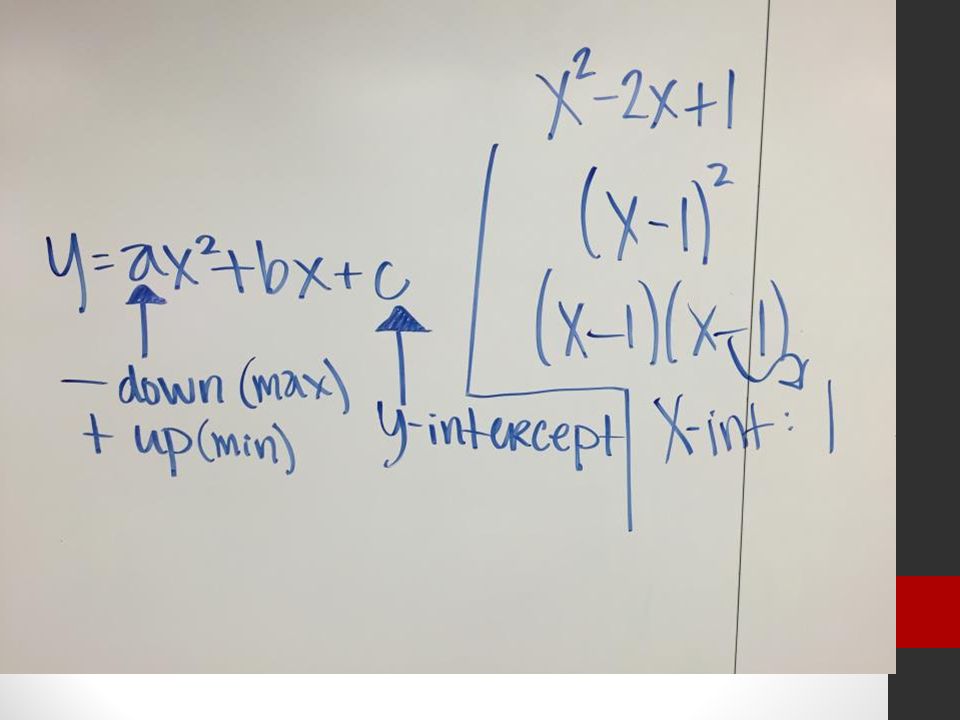 y=ax²+bx+c
— down (max)
+ up (min)
y-intercept
x²-2x+1
(x-1)²
(x-1)(x-1)
x-int: 1